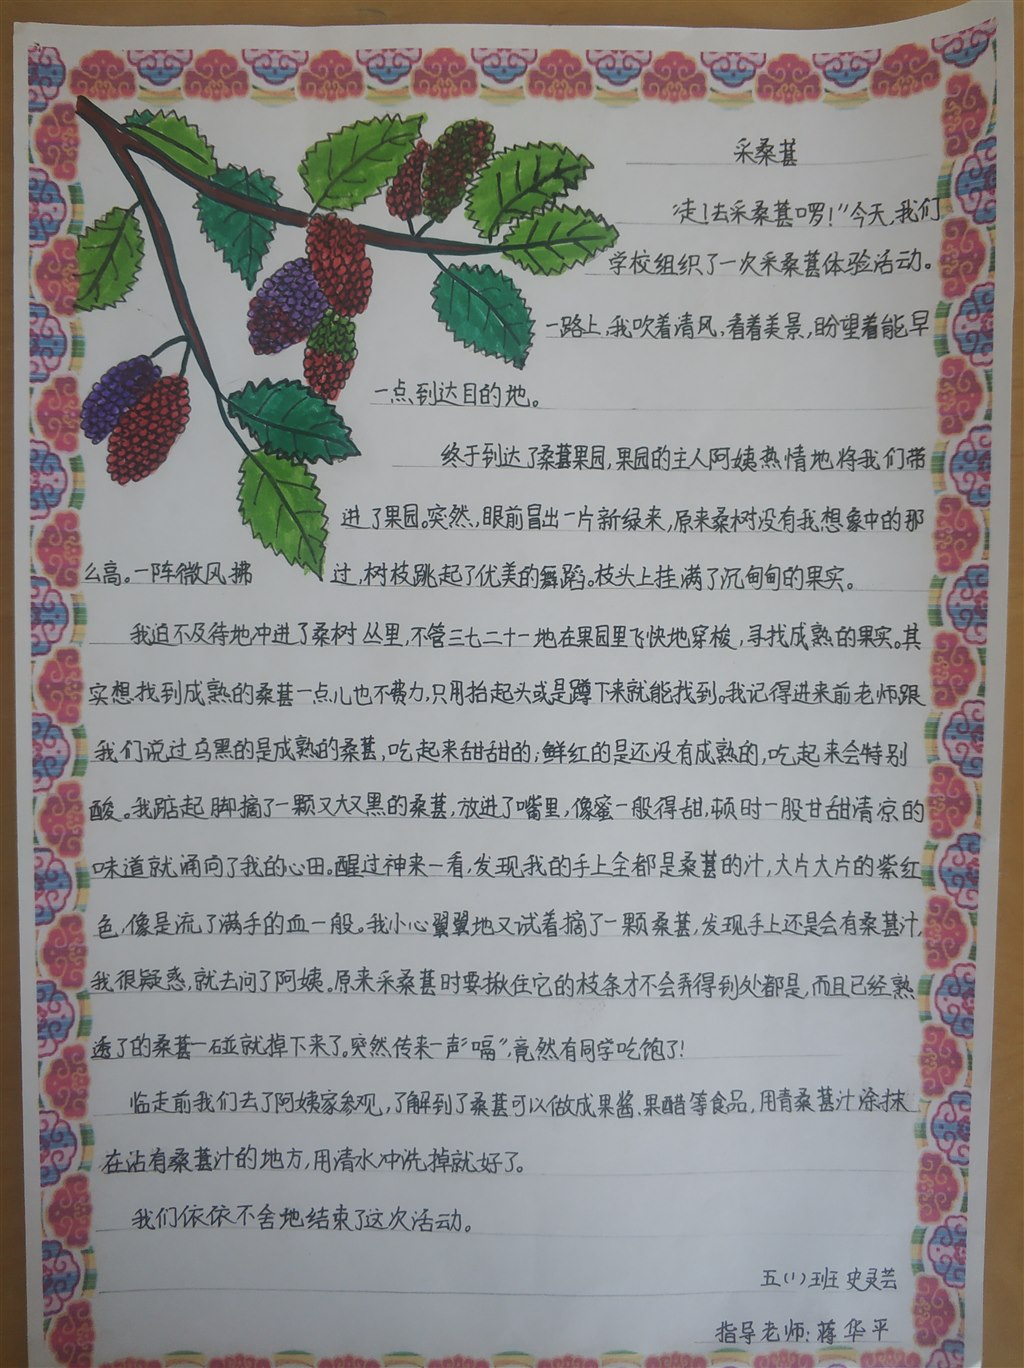 采桑葚
“走！去采桑葚啰！”今天，我们
学校组织了一次采桑葚体验活动。
一路上，我吹着清风，看着美景，盼望着能早
一点到达目的地。
终于到达了桑葚果园，果园的主人阿姨热情地将我们带
进了果园。突然，眼前冒出一片新绿来，原来桑树没有我想象中的那
么高。一阵微风拂过，树枝跳起了优美的舞蹈。枝头上挂满了沉甸甸的果实。
我迫不及待地冲进了桑树丛里，不管三七二十一地在果园里飞快地穿梭，寻找成熟的果实。其
实想找到成熟的桑葚一点儿也不费力，只用抬起头或是蹲下来就能找到。我记得进来前老师跟
我们说过乌黑的是成熟的桑葚，吃起来甜甜的；鲜红的是还没有成熟的，吃起来会特别
酸。我踮起脚摘了一颗又大又黑的桑葚，放进了嘴里，像蜜一般得甜，顿时一股甘甜清凉的
味道就涌向了我的心田。醒过神来一看，发现我的手上全都是桑葚的汁，大片大片的紫红
色，像是流了满手的血一般。我小心翼翼地又试着摘了一颗桑葚，发现手上还是会有桑葚汁，
我很疑惑，就去问了阿姨。原来采桑葚时要揪住它的枝条才不会弄得到处都是，而且已经熟
透了的桑葚一碰就掉下来了。突然传来一声“嗝”，竟然有同学吃饱了！
临走前我们去了阿姨家参观，了解到了桑葚可以做成果酱、果醋等食品，用青桑葚汁涂抹
在沾有桑葚汁的地方，用清水冲洗掉就好了。
我们依依不舍地结束了这次活动。
五（1）班 史灵芸
指导老师：蒋华平